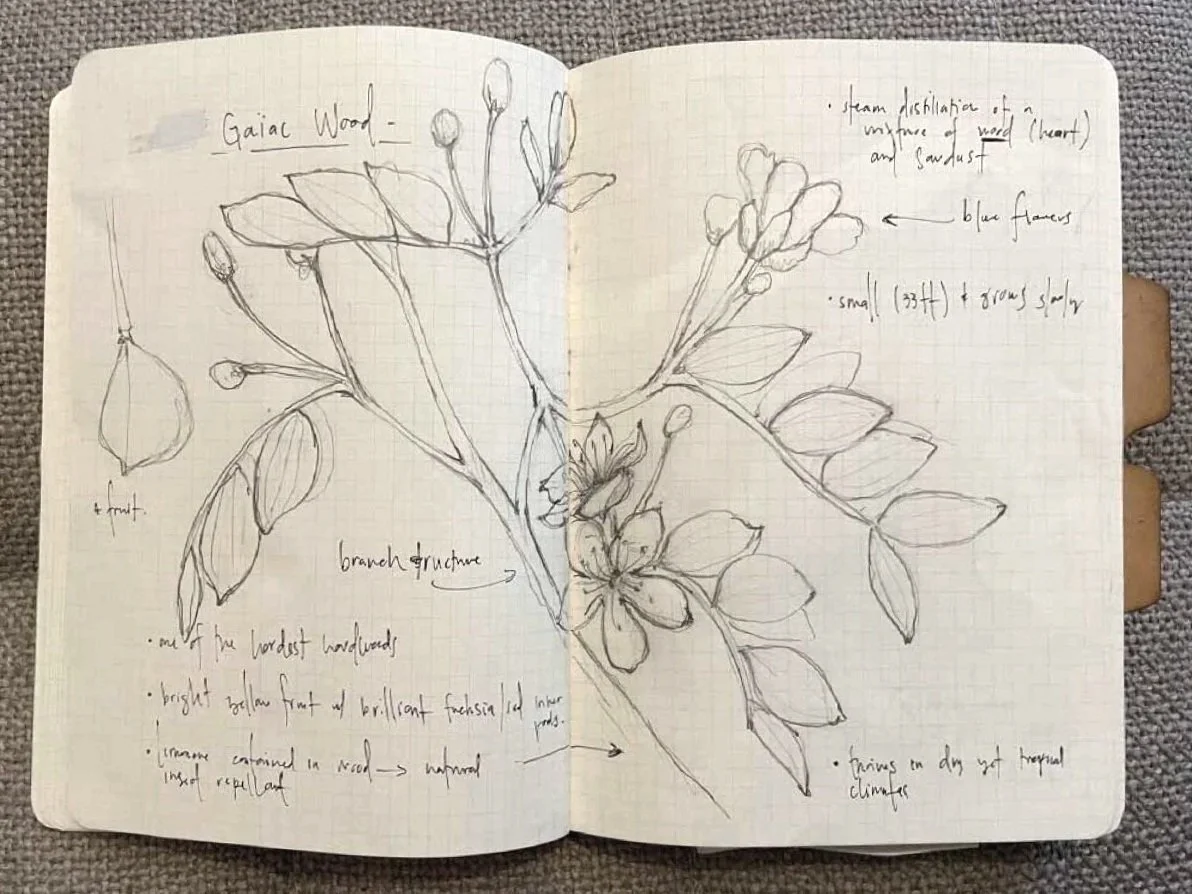 Gaïac Wood -
& fruit.
branch structure
• one of the hardest hardwoods
• bright yellow fruit w/ brilliant fuchsia/red inner
pods.
• contained in wood → natural
insect repellant
• steam distillation of a
mixture of wood (heart)
and sawdust
← blue flowers
• small (33ft) & grows slowly
• thrives in dry yet tropical
climates